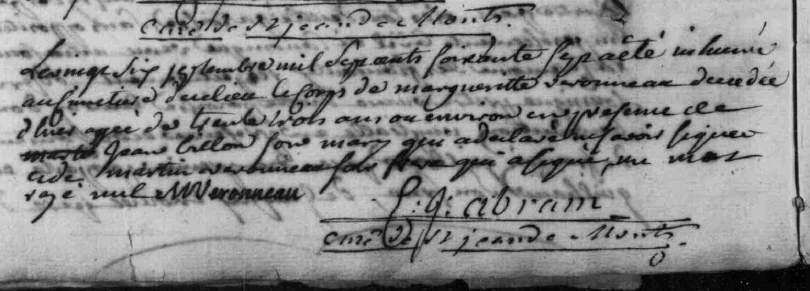 curé de st jean de Monts.
Le vingt six septembre mil sept cents soixante sept a été inhumé
au cimetiere d'u lieu le corps de margueritte veronneau decedée
d'hier agée de trente trois ans ou environ en presence de
marti Jean billon son mary qui a declaré ne savoir signer
et de martin veronneau son frere qui a signé, un mot
rayé nul MVeronneau
f: g: abram
curé de st jean de Monts.